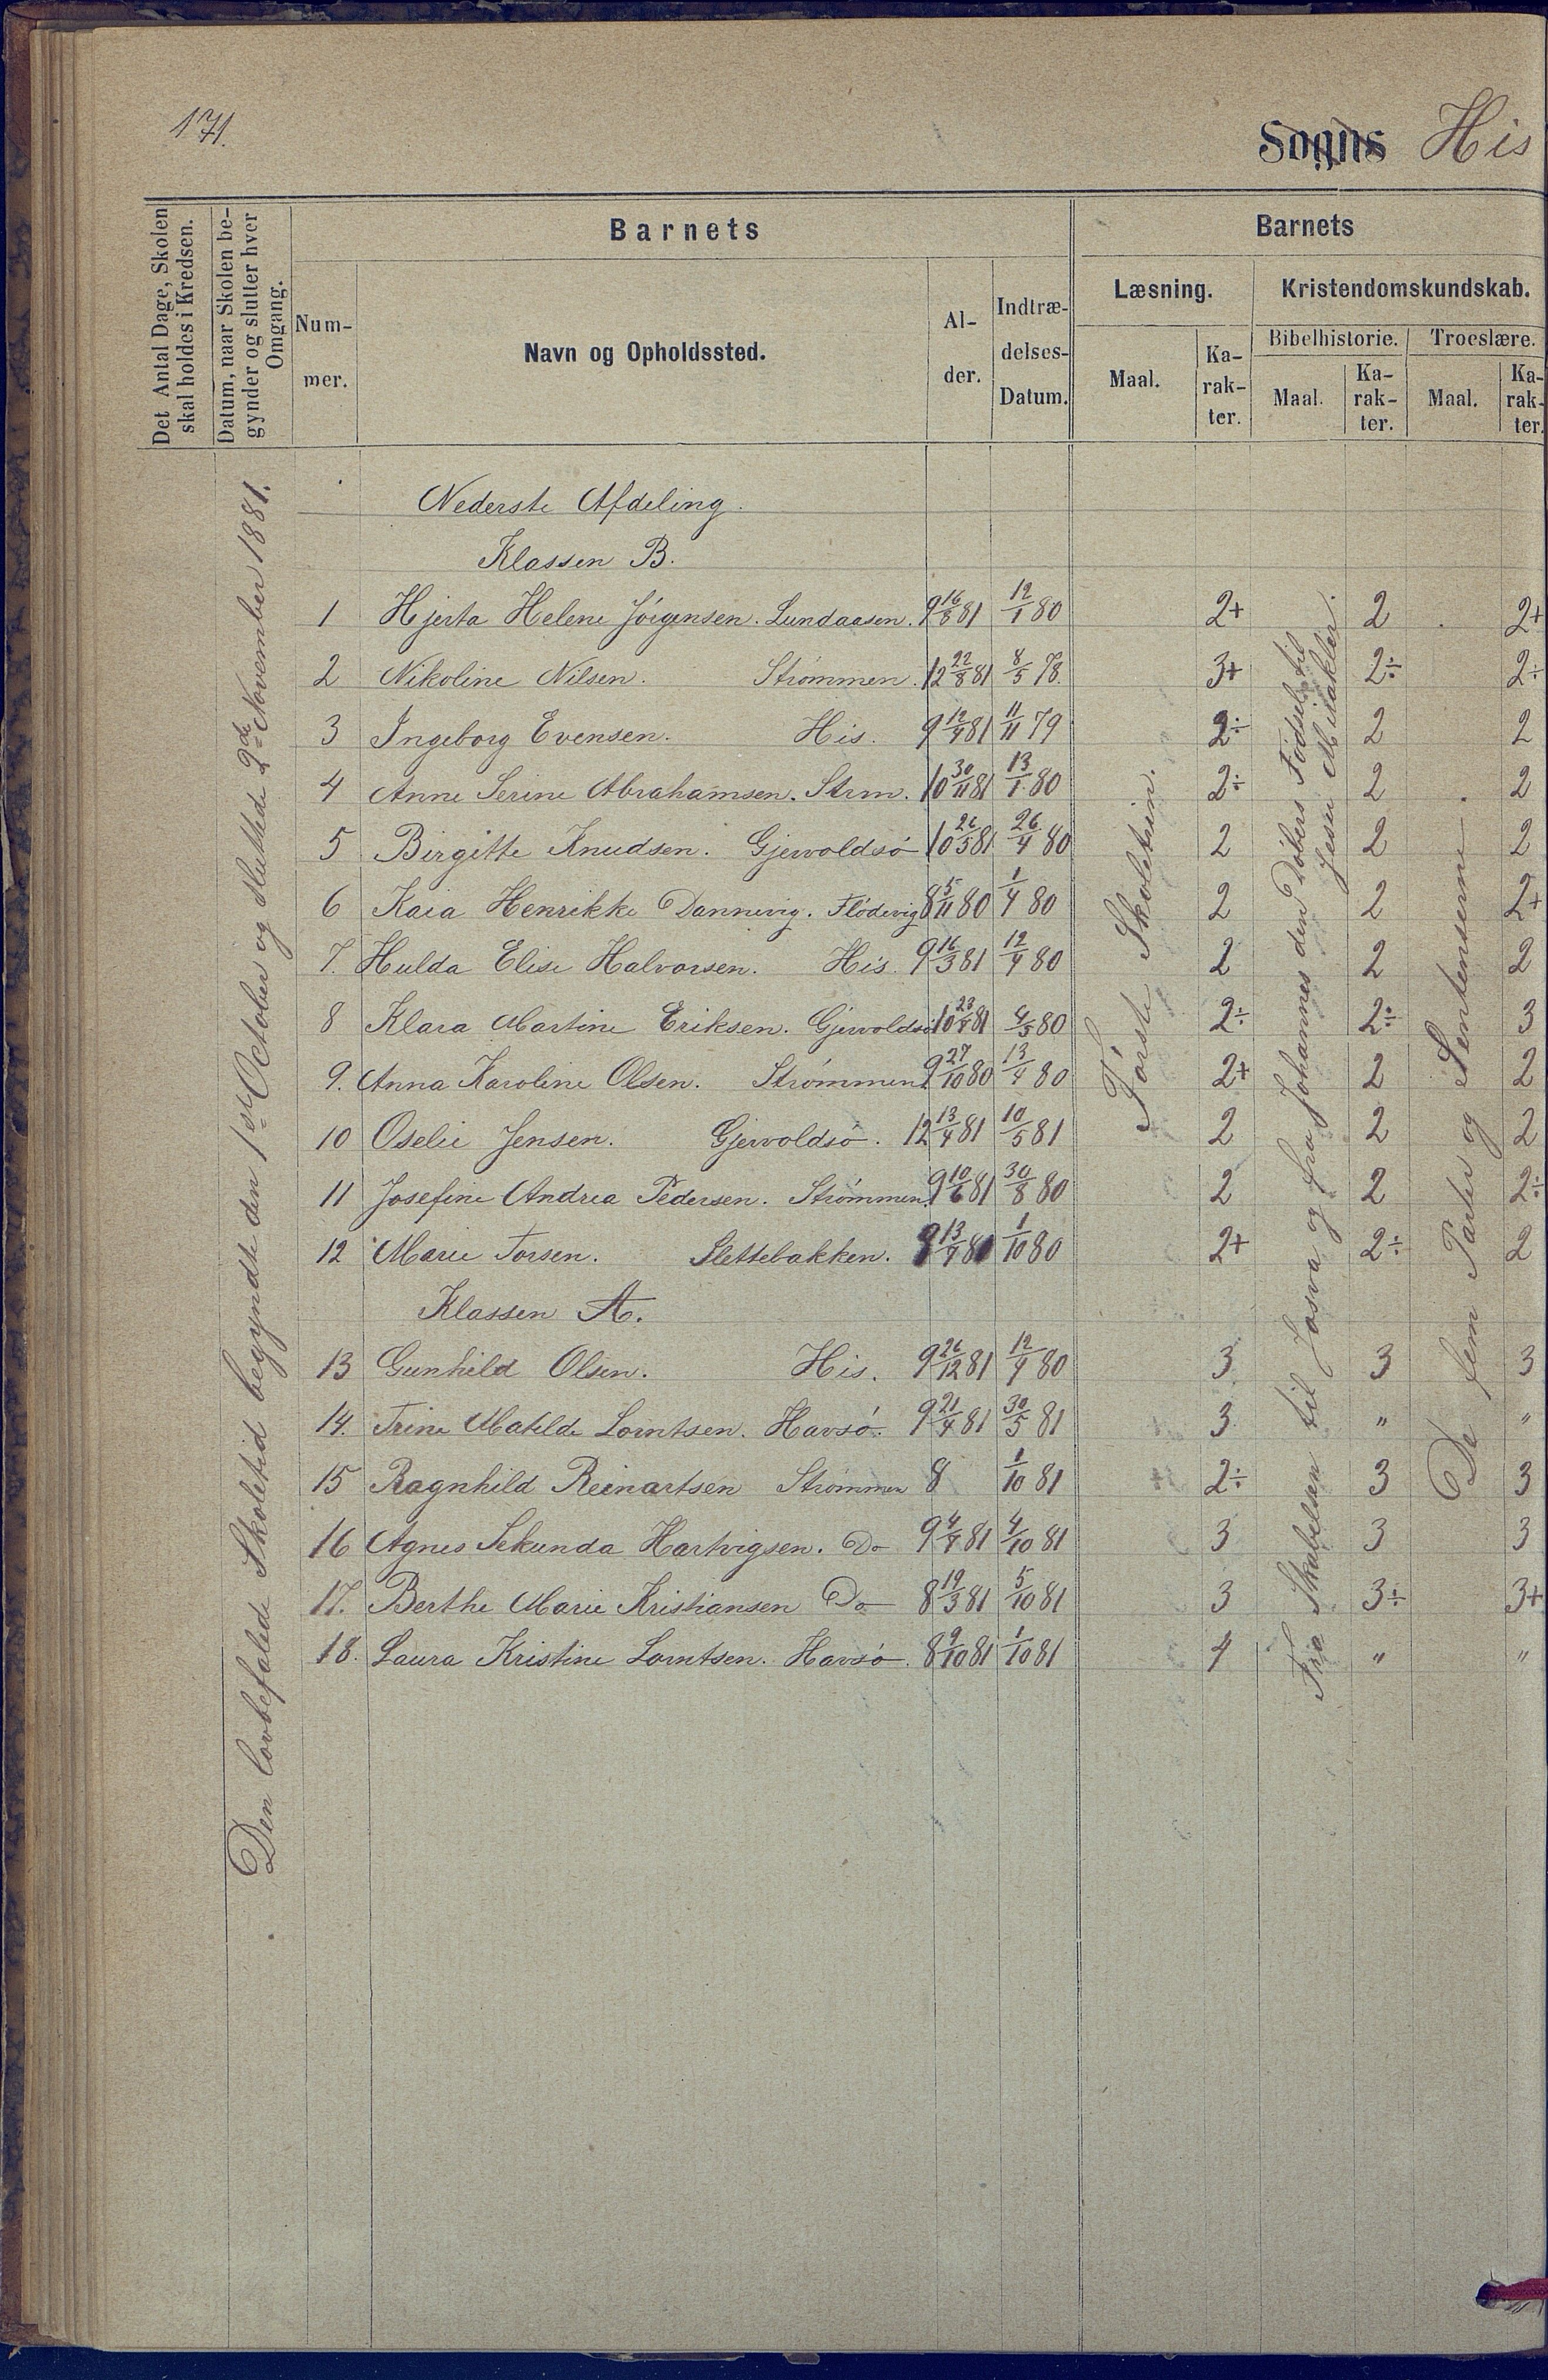 171.
Sogns His
Det Antal Dage, Skolen skal holdes i Kredsen.
Datum, naar Skolen begynder og slutter hver Omgang.
Barnets
Barnets
Num-mer.
Navn og Opholdssted.
Al-der.
Indtræ-delses-Datum.
Læsning.
Kristendomskundskab.
Bibelhistorie.
Troeslære.
Maal.
Ka-rak-ter.
Maal.
Ka-rak-ter.
Maal.
Ka-rak-ter.
Den lovbefalede Skoletid begyndte den 1ste October og sluttede 2de November 1881.
Første Skoletrin.
Fra Skabelsen til Josva og fra Johannes den Døbers Fødsel til Jesu Mirakler.
De fem Parter og Sentenserne
Nederste Afdeling.
Klassen B.
1 Hjerta Helene Jörgensen. Lundaasen. 9 16/8 81 12/1 80 2+ 2 2+
2 Nikoline Nilsen. Strömmen. 12 22/8 81 8/5 78. 3+ 2÷ 2÷
3 Ingeborg Evensen. His. 9 12/4 81 11/11 79 2÷ 2 2
4 Anne Serine Abrahamsen. Strm. 10 30/11 81 13/1 80 2÷ 2 2
5 Birgitte Knudsen. Gjervoldsö 10 26/5 81 26/4 80 2 2 2
6 Kaia Henrikke Dannevig. Flödevig 8 5/11 80 1/4 80 2 2 2+
7. Hulda Elise Halvorsen. His. 9 16/3 81 12/4 80 2 2 2
8 Klara Martine Eriksen. Gjervoldsö 10 23/4 81 4/5 80 2÷ 2÷ 3
9. Anna Karoline Olsen. Strömmen. 9 27/10 80 13/4 80 2+ 2 2
10 Oselie Jensen. Gjervoldsö. 12 13/4 81 10/5 81 2 2 2
11 Josefine Andrea Pedersen. Strömmen. 9 10/6 81 30/8 80 2 2 2÷
12 Marie Torsen. Slettebakken. 13/4 1/10 80 2+ 2÷ 2
Klassen A.
13 Gunhild Olsen. His. 9 26/12 81 12/4 80 3 3 3
14. Trine Matilde Lorntsen. Havsö. 9 21/4 81 30/5 81 3 " "
15 Ragnhild Reinartsen Strömmen 8 1/10 81 2÷ 3 3
16 Agnes Sekunda Hartvigsen. Do 9 4/4 81 4/10 81 3 3 3
17. Berthe Marie Kristiansen Do 8 19/3 81 5/10 81 3 3÷ 3+
18. Laura Kristine Lorntsen. Havsö. 8 9/10 81 1/10 81 4 " "